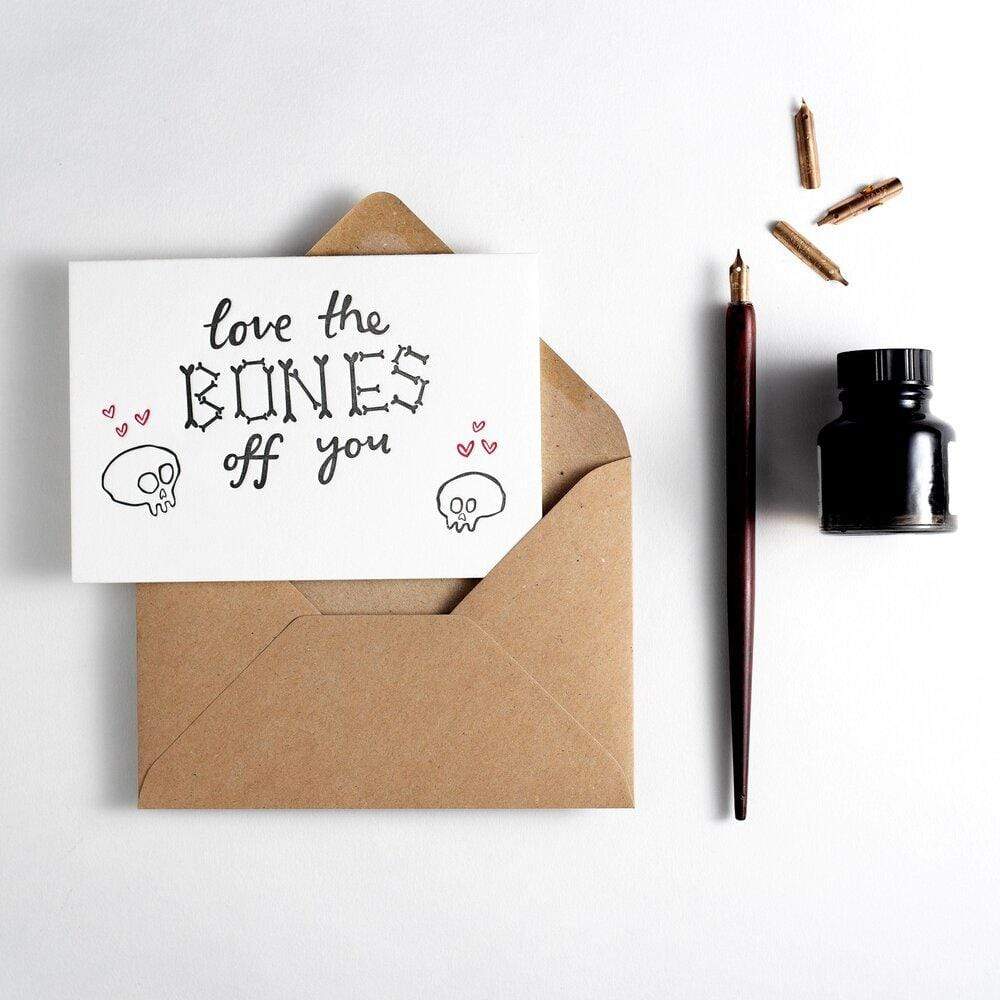 love the
BONES
off you